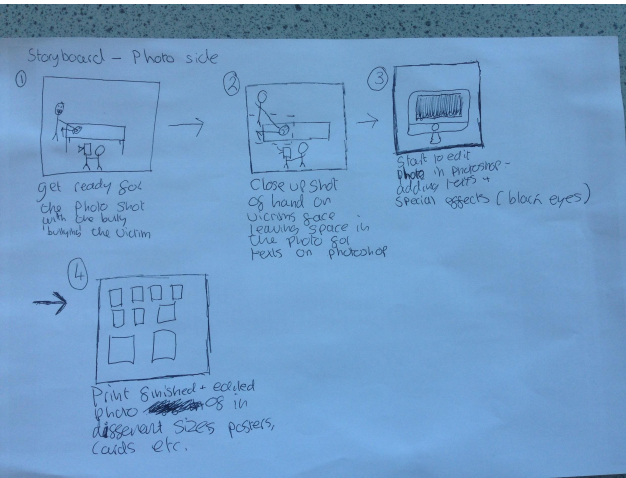 Storyboard - Photo side
①
get ready for
the photo shot
with the bully
'bullying' the victim
②
Close up shot
of hand on
victims face
leaving space in
the photo for
texts on photoshop
③
Start to edit
photo in photoshop -
adding texts +
special effects (black eyes)
④
Print finished + edited
photo of in
different sizes posters,
cards etc.